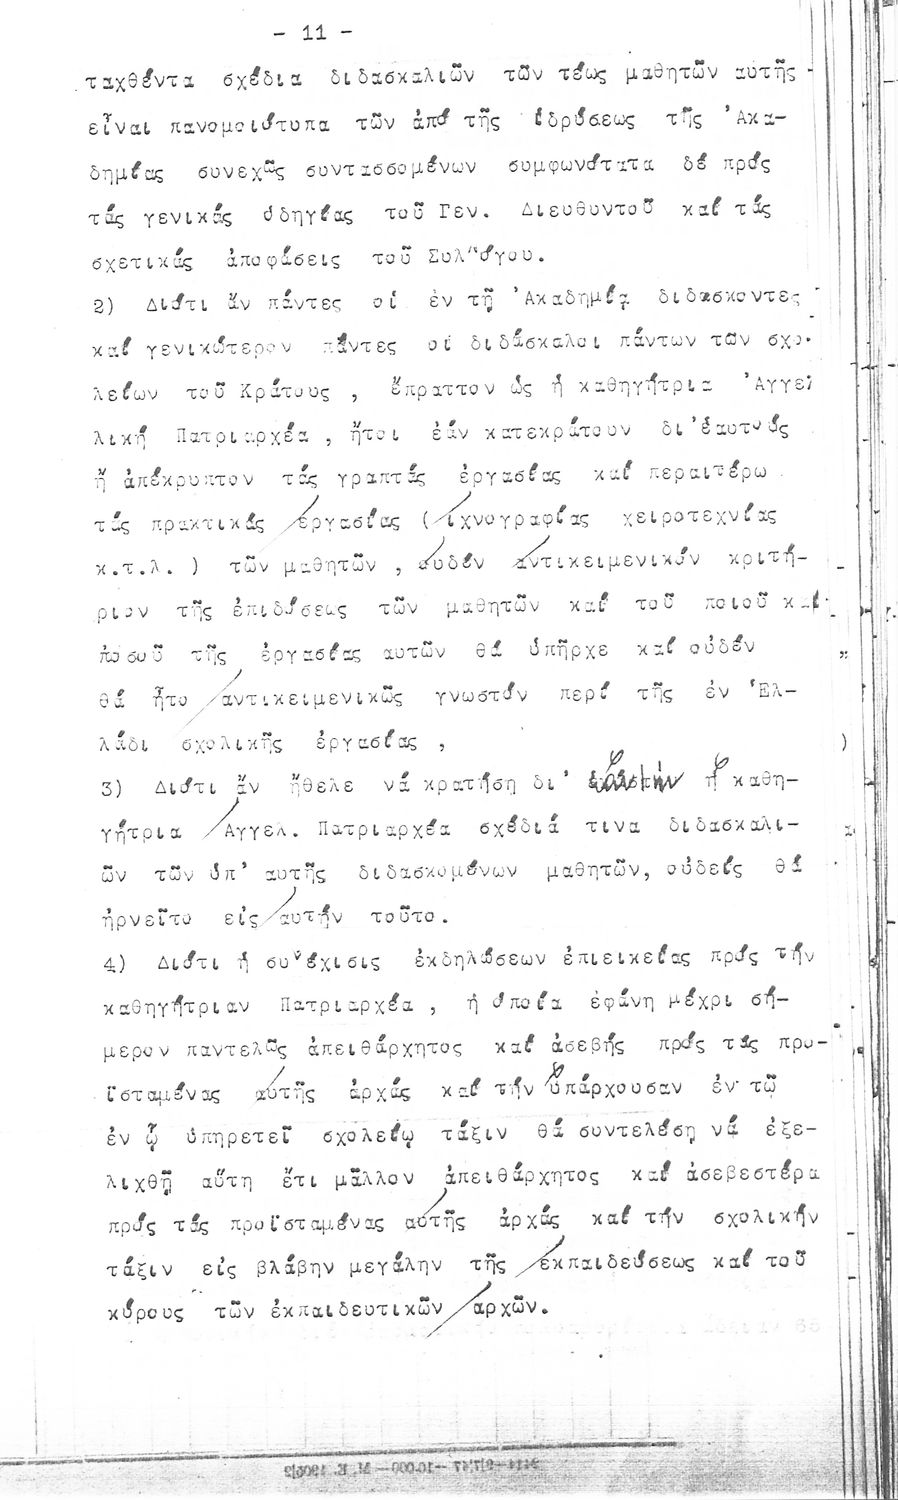 - 11 -
ταχθέντα σχέδια διδασκαλιῶν τῶν τέως μαθητῶν αὐτῆς
εἶναι πανομοιότυπα τῶν ἀπό τῆς ἱδρύσεως τῆς Ἀκα-
δημίας συνεχῶς συντασσομένων συμφωνότατα δέ πρός
τάς γενικάς ὁδηγίας τοῦ Γεν. Διευθυντοῦ καί τάς
σχετικάς ἀποφάσεις τοῦ Συλλόγου.
2) Διότι ἄν πάντες οἱ ἐν τῇ Ἀκαδημίᾳ διδάσκοντες
καί γενικώτερον πάντες οἱ διδάσκαλοι πάντων τῶν σχο-
λείων τοῦ Κράτους , ἔπραττον ὡς ἡ καθηγήτρια Ἀγγελ
λική Πατριαρχέα , ἤτοι ἐάν κατεκράτουν δι'ἑαυτούς
ἤ ἀπέκρυπτον τάς γραπτάς ἐργασίας καί περαιτέρω
τάς πρακτικάς ἐργασίας ( ἰχνογραφίας χειροτεχνίας
κ.τ.λ. ) τῶν μαθητῶν , οὐδέν ἀντικειμενικόν κριτή-
ριον τῆς ἐπιδόσεως τῶν μαθητῶν καί τοῦ ποιοῦ καί
ποσοῦ τῆς ἐργασίας αὐτῶν θά ὑπῆρχε καί οὐδέν
θά ἦτο ἀντικειμενικῶς γνωστόν περί τῆς ἐν Ἑλ-
λάδι σχολικῆς ἐργασίας ,
3) Διότι ἄν ἤθελε νά κρατήσῃ δι' ἑαυτήν ἡ καθη-
γήτρια Ἀγγελ. Πατριαρχέα σχέδιά τινα διδασκαλι-
ῶν τῶν ὑπ' αὐτῆς διδασκομένων μαθητῶν, οὐδείς θά
ἠρνεῖτο εἰς αὐτήν τοῦτο.
4) Διότι ἡ συνέχισις ἐκδηλώσεων ἐπιεικείας πρός τήν
καθηγήτριαν Πατριαρχέα , ἡ ὁποία ἐφάνη μέχρι σή-
μερον παντελῶς ἀπειθάρχητος καί ἀσεβής πρός τάς προ-
ϊσταμένας αὐτῆς ἀρχάς καί τήν ὑπάρχουσαν ἐν τῷ
ἐν ᾧ ὑπηρετεῖ σχολείῳ τάξιν θά συντελέσῃ νά ἐξε-
λιχθῇ αὕτη ἔτι μᾶλλον ἀπειθάρχητος καί ἀσεβεστέρα
πρός τάς προϊσταμένας αὐτῆς ἀρχάς καί τήν σχολικήν
τάξιν εἰς βλάβην μεγάλην τῆς ἐκπαιδεύσεως καί τοῦ
κύρους τῶν ἐκπαιδευτικῶν ἀρχῶν.